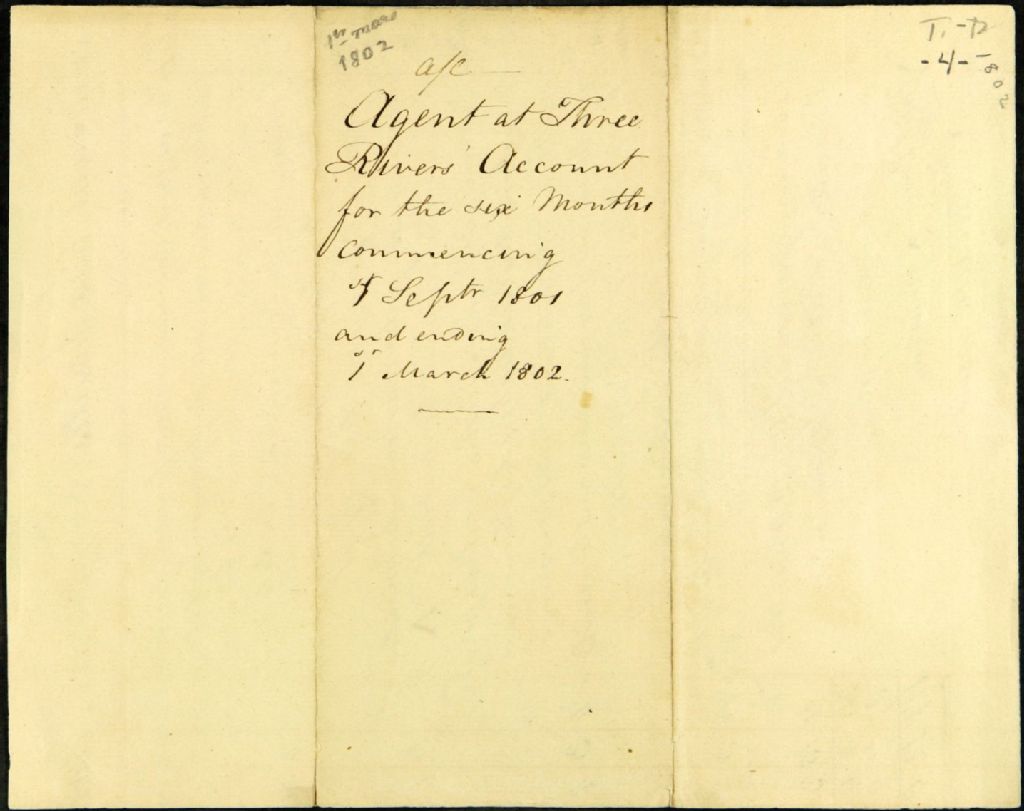 1er mars
1802
T.-R
-4-1802
a/c
Agent at Three
Rivers' Account
for the six Months
commencing
1st Septr 1801
and ending
1st March 1802.